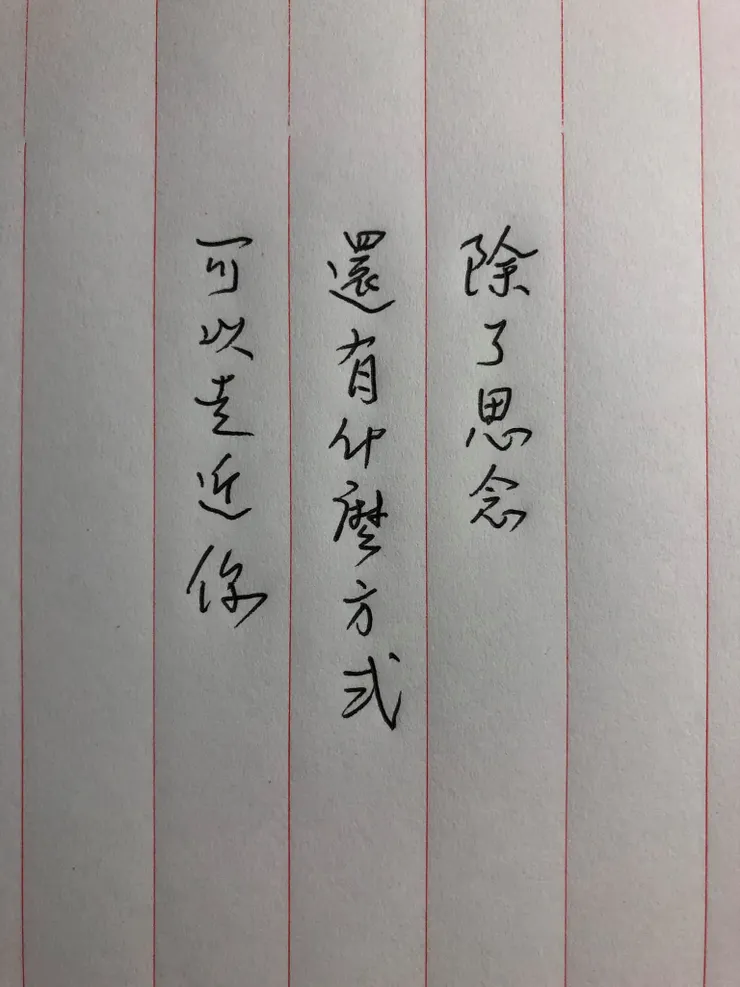 除了思念
還有什麼方式
可以走近你